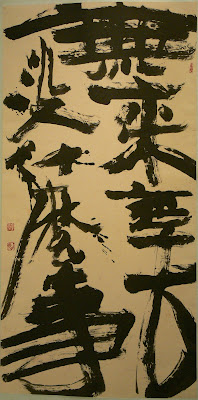 無來無去
沒什麼事